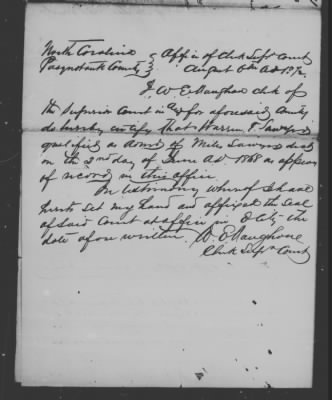 North Carolina } Office of Clerk Supr Court
Pasquotank County } August 6th AD 187
I, W. E. Vaughan clk of
the Superior Court in & for aforesaid County
do hereby certify that Warren F. Sawyer
qualified as Admr of Miles Sawyer decd
on the 2nd day of June AD 1868 as appears
of record in this office.
In testimony whereof I have
hereto set my hand and affixed the seal
of said Court at office in E City the
date afore written W. E. Vaughan
Clerk Supr Court